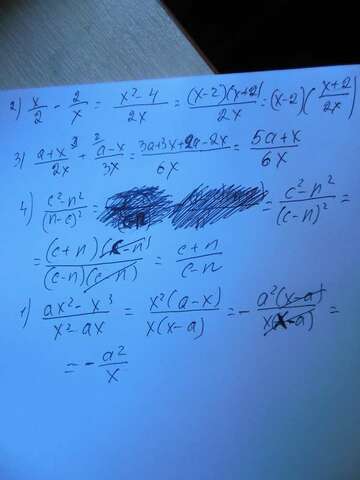 2) x/2 - 2/x = (x²-4)/2x = (x-2)(x+2)/2x = (x-2)((x+2)/2x)
3) (a+x)³/2x + ²(a-x)/3x = (3a+3x+2a-2x)/6x = (5a+x)/6x
4) (c²-n²)/(n-c)² = = (c²-n²)/(c-n)² =
= (c+n)(c-n)/(c-n)(c-n) = (c+n)/(c-n)
1) (ax²-x³)/(x²-ax) = x²(a-x)/x(x-a) = - a²(x-a)/x(x-a) =
= - a²/x